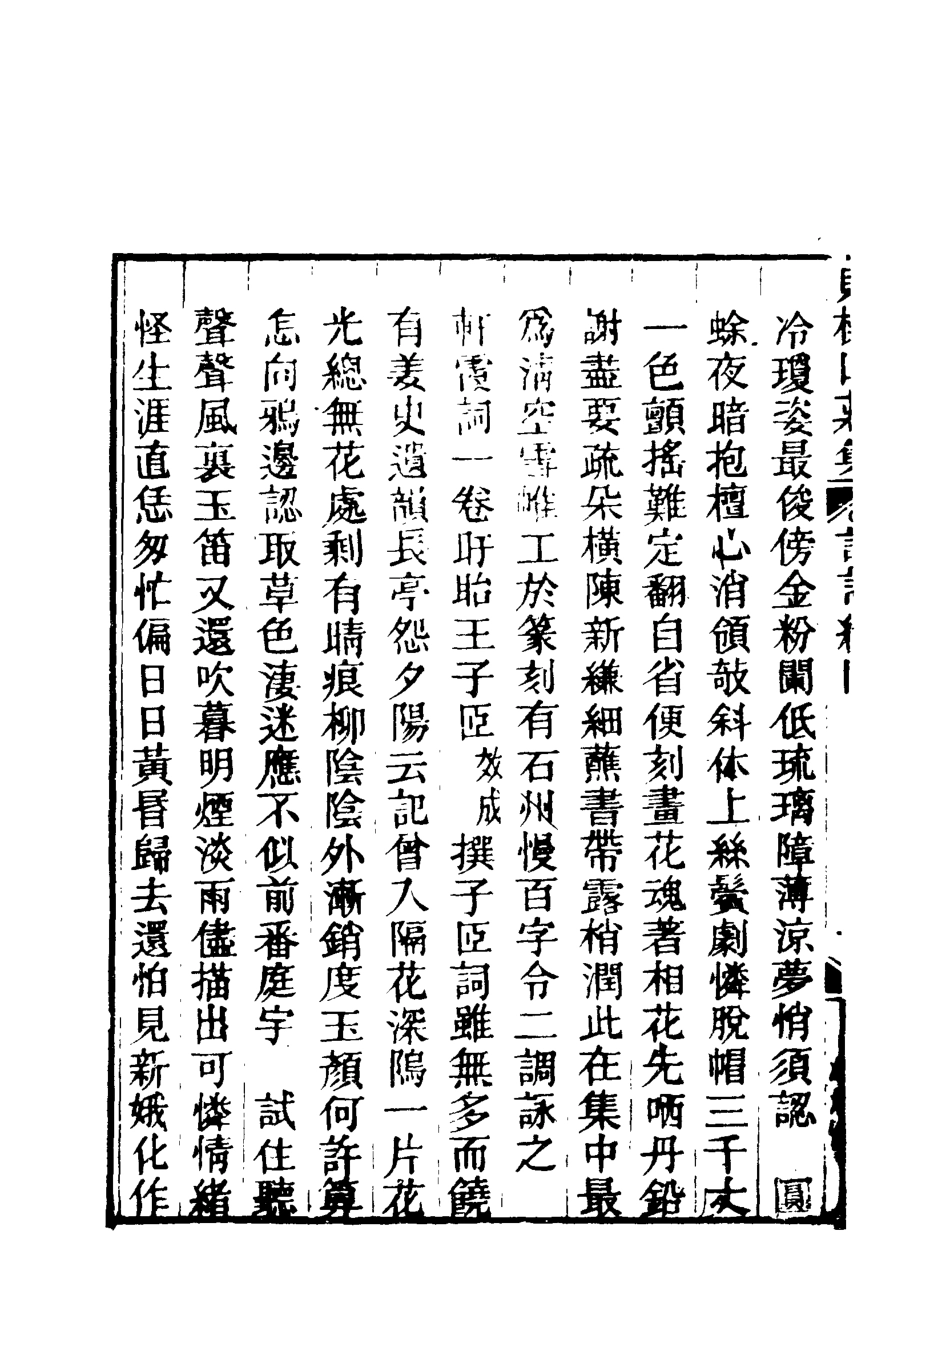 冷瓊姿最俊傍金粉闌低琉璃障薄涼夢悄須認　圓
蜍夜暗抱檀心消領敧斜体上絲鬢劇憐脫帽三千丈
一色顫搖難定翻自省便刻畫花魂著相花先哂丹鉛
謝盡要疏朵橫陳新縑細蘸書帶露梢潤此在集中最
爲淸空霅樵工於篆刻有石州慢百字令二調詠之
軒霞詞一卷盱眙王子臣效成撰子臣詞雖無多而饒
有姜史遺韻長亭怨夕陽云記曾入隔花深隖一片花
光總無花處剩有晴痕柳陰陰外漸銷度玉顏何許算
怎向鴉邊認取草色淒迷應不似前番庭宇　試住聽
聲聲風裏玉笛又還吹暮明煙淡雨儘描出可憐情緒
怪生涯直恁匆忙偏日日黃昏歸去還怕見新娥化作